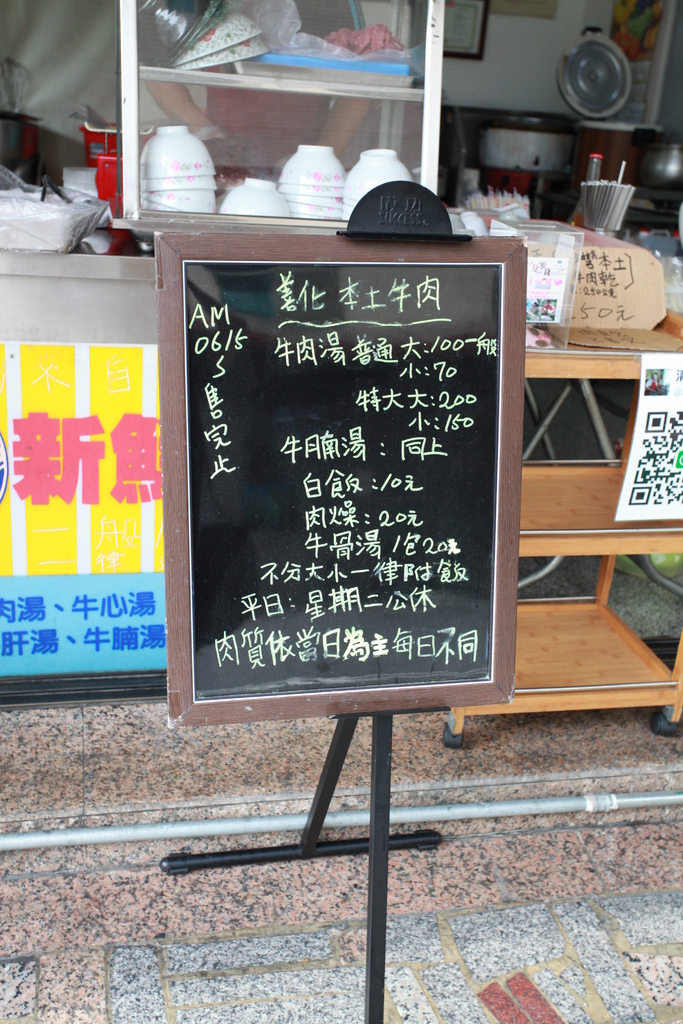 成功
SUCCESS
善化 本土牛肉
AM
0615
售完止
牛肉湯 普通 大:100一般
小:70
特大 大:200
小:150
牛腩湯:同上
白飯:10元
肉燥:20元
牛骨湯 1包20元
不分大小一律附飯
平日:星期二公休
肉質依當日為主每日不同
本土
牛肉乾
250公克
250元
米 白
新鮮
一般
一律
肉湯、牛心湯
肝湯、牛腩湯